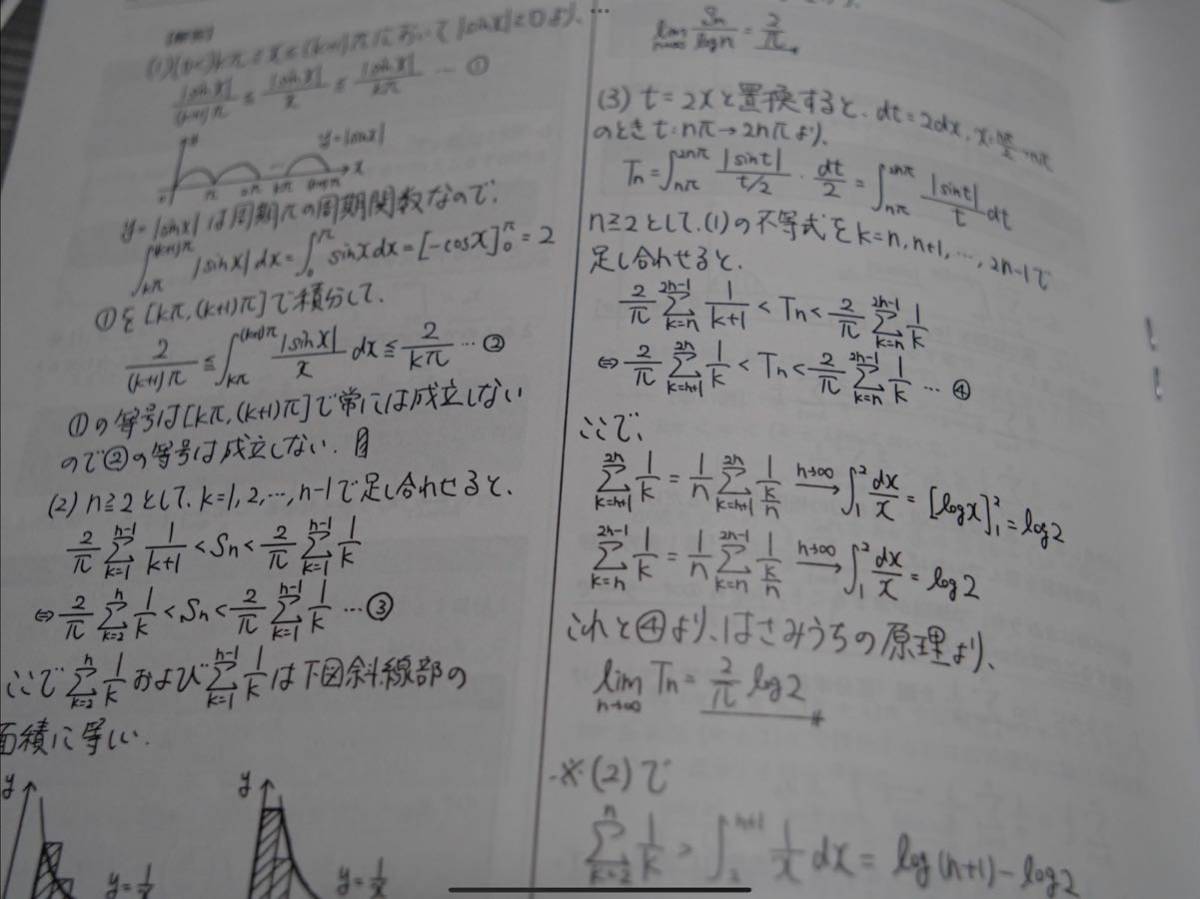 (1) kπ≦x≦(k+1)πにおいて|sinx|≧0より、
|sinx|/(k+1)π ≦ |sinx|/x ≦ |sinx|/kπ … ①
y=|sinx|
x
π 2π kπ (k+1)π
y=|sinx|は周期πの周期関数なので、
∫_{kπ}^{(k+1)π} |sinx|dx=∫_0^π sinxdx=[-cosx]_0^π=2
①を[kπ,(k+1)π]で積分して、
2/(k+1)π ≦ ∫_{kπ}^{(k+1)π} |sinx|/x dx ≦ 2/kπ … ②
①の等号は[kπ,(k+1)π]で常には成立しない
ので②の等号は成立しない.
(2) n≧2として、k=1,2,…,n-1で足し合わせると、
2/π Σ_{k=1}^{n-1} 1/(k+1) < Sn < 2/π Σ_{k=1}^{n-1} 1/k
⇔ 2/π Σ_{k=2}^{n} 1/k < Sn < 2/π Σ_{k=1}^{n-1} 1/k … ③
ここで Σ_{k=2}^{n} 1/k および Σ_{k=1}^{n-1} 1/k は下図斜線部の
面積に等しい.
y y
y=1/x y=1/x
lim_{n→∞} Sn/logn = 2/π
(3) t=2xと置換すると、dt=2dx, x:nπ/2→nπ
のときt:nπ→2nπより、
Tn=∫_{nπ}^{2nπ} |sint|/(t/2)・dt/2=∫_{nπ}^{2nπ} |sint|/t dt
n≧2として、(1)の不等式をk=n,n+1,…,2n-1で
足し合わせると、
2/π Σ_{k=n}^{2n-1} 1/(k+1) < Tn < 2/π Σ_{k=n}^{2n-1} 1/k
⇔ 2/π Σ_{k=n+1}^{2n} 1/k < Tn < 2/π Σ_{k=n}^{2n-1} 1/k … ④
ここで、
Σ_{k=n+1}^{2n} 1/k = 1/n Σ_{k=n+1}^{2n} 1/(k/n) →(n→∞) ∫_1^2 dx/x = [logx]_1^2 = log2
Σ_{k=n}^{2n-1} 1/k = 1/n Σ_{k=n}^{2n-1} 1/(k/n) →(n→∞) ∫_1^2 dx/x = log2
これと④より、はさみうちの原理より、
lim_{n→∞} Tn = 2/π log2
※(2)で
Σ_{k=2}^{n} 1/k > ∫_2^{n+1} 1/x dx = log(n+1)-log2